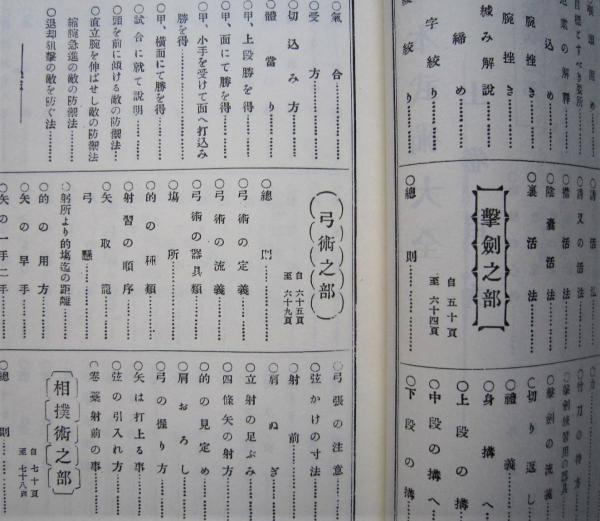 締め
腕挫き
腕挫き
緘み解説
締め
十字絞り
絞り
誘活法
誘又の活法
襟活法
陰嚢活法
裏活法
撃劍之部
自五十頁
至六十四頁
○總則
竹刀の持方
○撃劍練習用の器具
○撃劍の流義
○切り返し
○禮義
○身搆へ
○上段の搆へ
○中段の搆へ
○下段の搆
○氣合
○受方
○切込み方
○體當り
○甲、上段勝を得
○甲、面にて勝を得
○甲、小手を受けて面へ打込み勝を得
○甲、橫面にて勝を得
○試合に就て說明
○頭を前に傾ける敵の防禦法
○直立腕を伸ばせし敵の防禦法
縮腕急進の敵の防禦法
○退却狙擊の敵を防ぐ法
弓術之部
自六十五頁
至六十九頁
○總則
○弓術の定義
○弓術の流義
○弓術の器具類
○塲所
○的の種類
○射習の順序
○矢取籠
弓懸
○射所より的塲迄の距離
○的の用方
○矢の早手
○矢の一手二手
○弓張の注意
○弦かけの寸法
○射前
○肩ぬぎ
○立射の足ぶみ
○四條矢の射方
○的の見定め
○肩おろし
○弓の握り方
○矢は打上る事
○弦の引入れ方
○卷藁射前の事
相撲術之部
自七十頁
至七十八頁
○總則